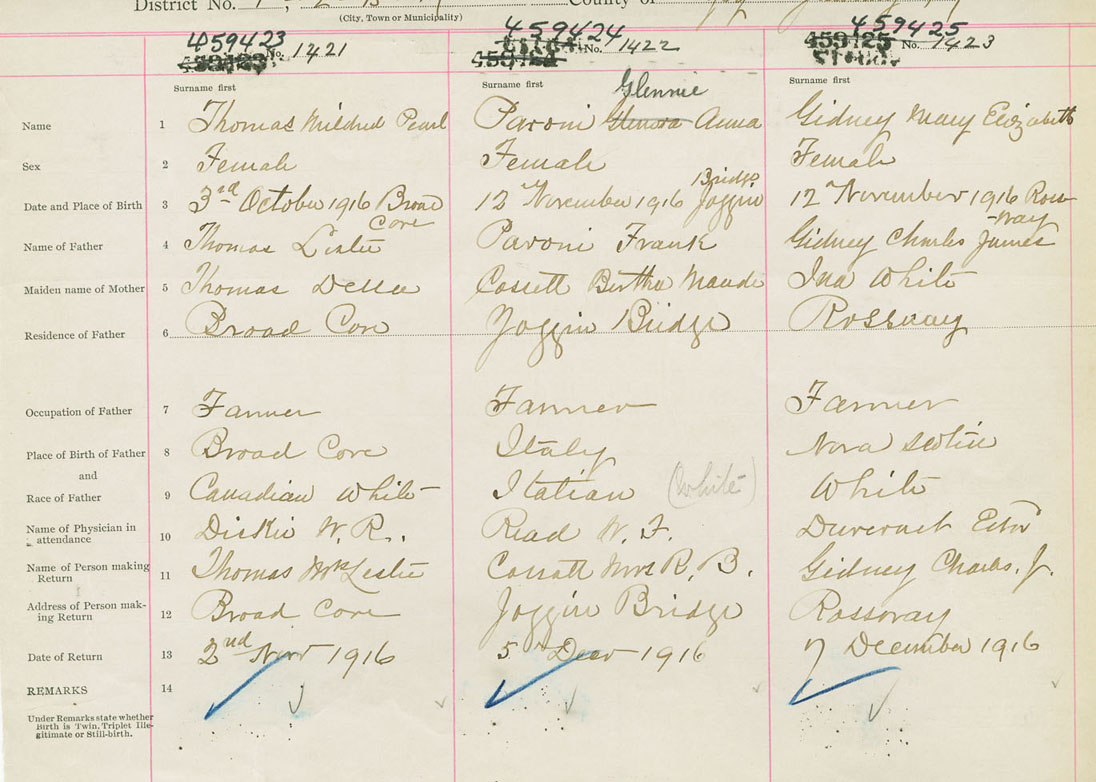 District No. County of
(City, Town or Municipality)
459423 459424 459425
No. 1421 No. 1422 No. 1423
Surname first Surname first Surname first
Glennie
Name 1 Thomas Mildred Pearl Paroni Glenora Anna Gidney Mary Elizabeth
Sex 2 Female Female Female
Bridge
Date and Place of Birth 3 3rd October 1916 Broad 12th November 1916 Joggin 12th November 1916 Ross
Cove -way
Name of Father 4 Thomas Leslie Paroni Frank Gidney Charles James
Maiden name of Mother 5 Thomas Della Cossett Bertha Maude Ina White
Residence of Father 6 Broad Cove Joggin Bridge Rossway
Occupation of Father 7 Farmer Farmer Farmer
Place of Birth of Father 8 Broad Cove Italy Nova Scotia
and
Race of Father 9 Canadian White Italian (White) White
Name of Physician in
attendance 10 Diskie W. R. Read W. F. Duvernet Edw
Name of Person making
Return 11 Thomas Mrs Leslie Cossett Mrs R. B. Gidney Charles. J.
Address of Person mak-
ing Return 12 Broad Cove Joggin Bridge Rossway
Date of Return 13 2nd Nov 1916 5th Dec 1916 7 December 1916
REMARKS 14
Under Remarks state whether
Birth is Twin, Triplet Ille-
gitimate or Still-birth.